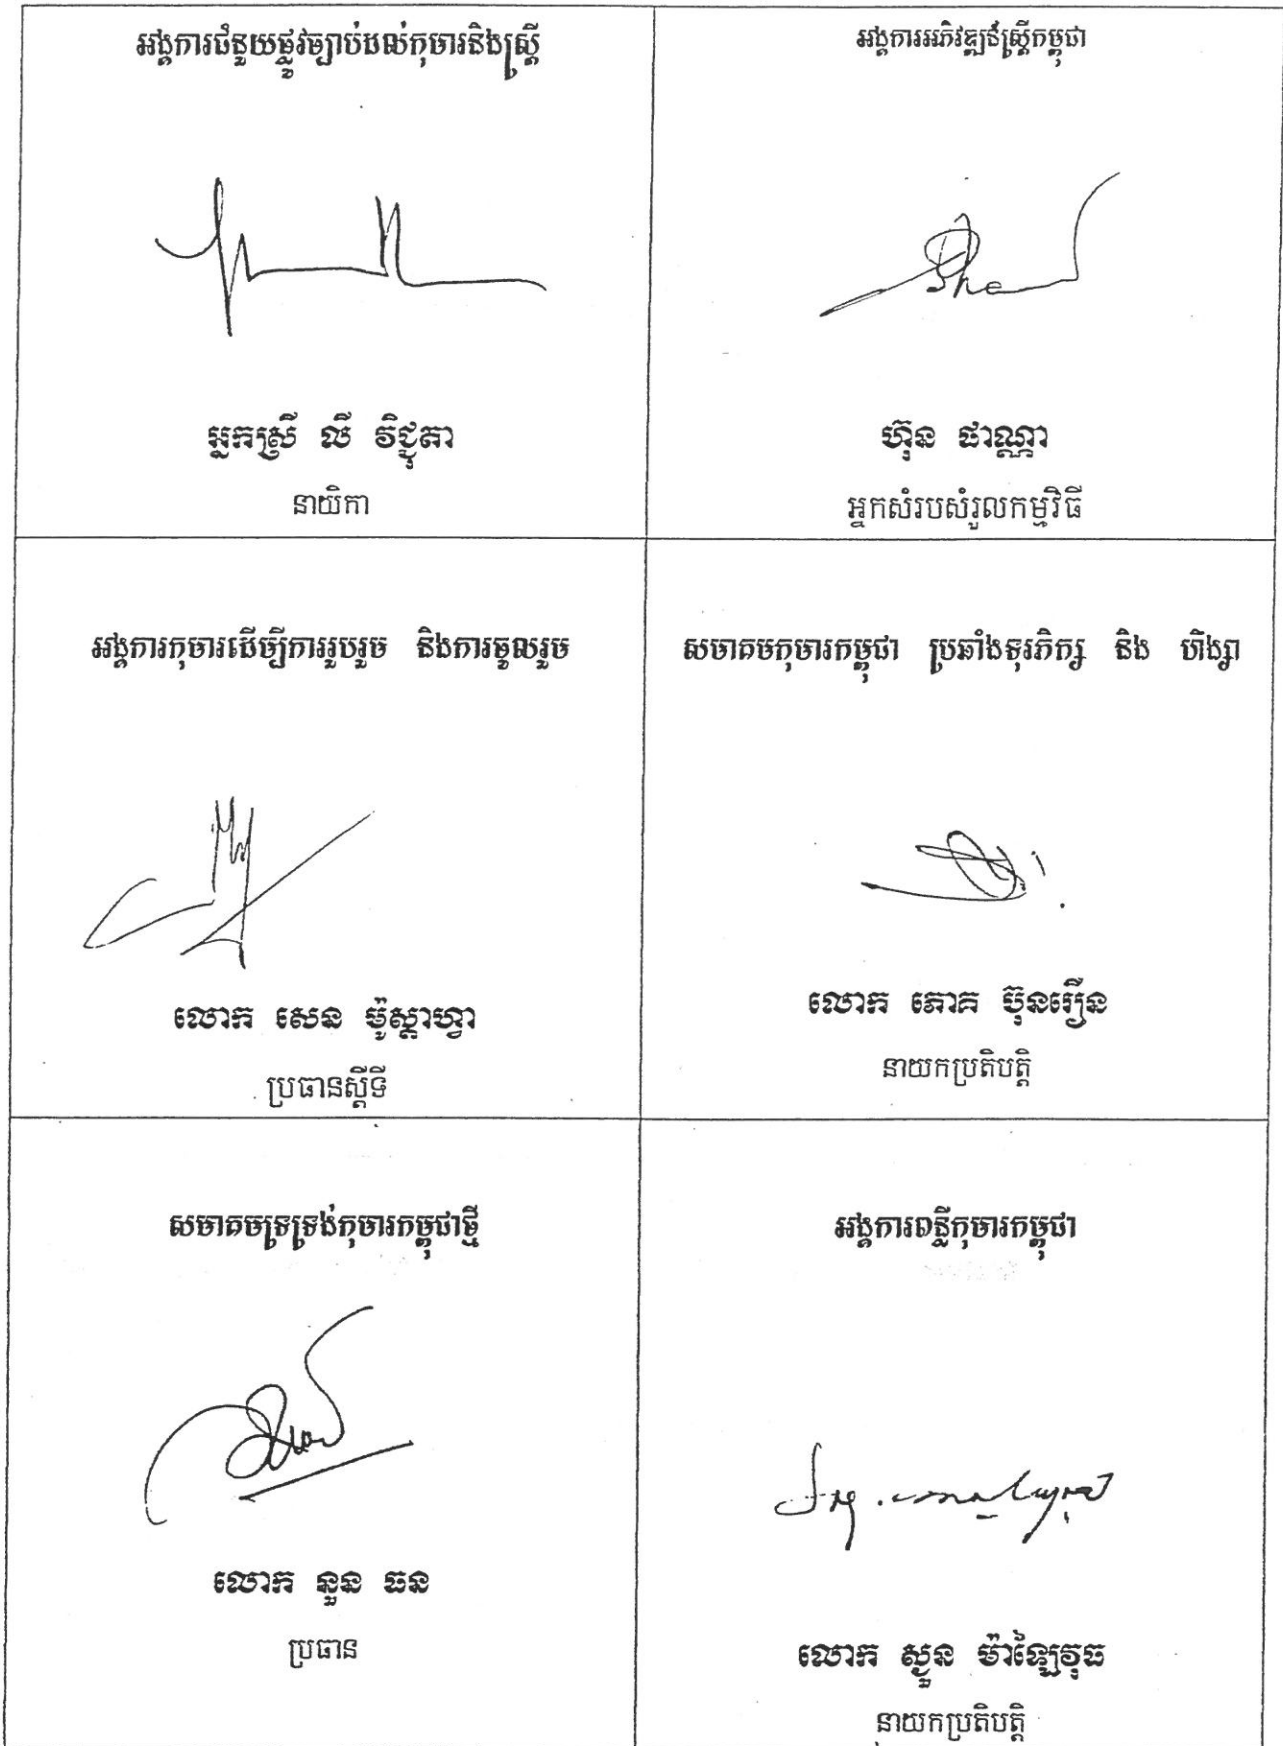 អង្គការជំនួយផ្លូវច្បាប់ដល់កុមារនិងស្ត្រី
អ្នកស្រី លី វិជ្ជុតា
នាយិកា
អង្គការអភិវឌ្ឍន៍ស្ត្រីកម្ពុជា
ហ៊ុន ផាណ្ណា
អ្នកសំរបសំរួលកម្មវិធី
អង្គការកុមារដើម្បីការរួបរួម និងការចូលរួម
លោក សេន ម៉ូស្តាហ្វា
ប្រធានស្តីទី
សមាគមកុមារកម្ពុជា ប្រឆាំងទុរភិក្ស និង ហិង្សា
លោក ភោគ ប៊ុនរឿន
នាយកប្រតិបត្តិ
សមាគមទ្រទ្រង់កុមារកម្ពុជាថ្មី
លោក នួន ធន
ប្រធាន
អង្គការពន្លឺកុមារកម្ពុជា
លោក ស្ងួន ម៉ាឡៃវុធ
នាយកប្រតិបត្តិ